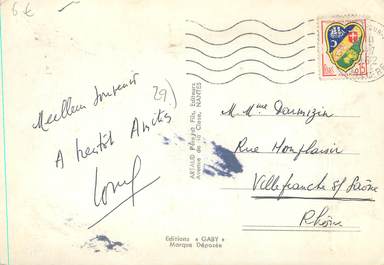 6 €
Meilleur Souvenir
29)
A bientôt
ARTAUD Père et Fils, Editeurs
Avenue de la Close, NANTES
M. Mme Darmizin
Rue Monplaisir
Villefranche s/ Saône
Rhône
Editions « GABY »
Marque Déposée